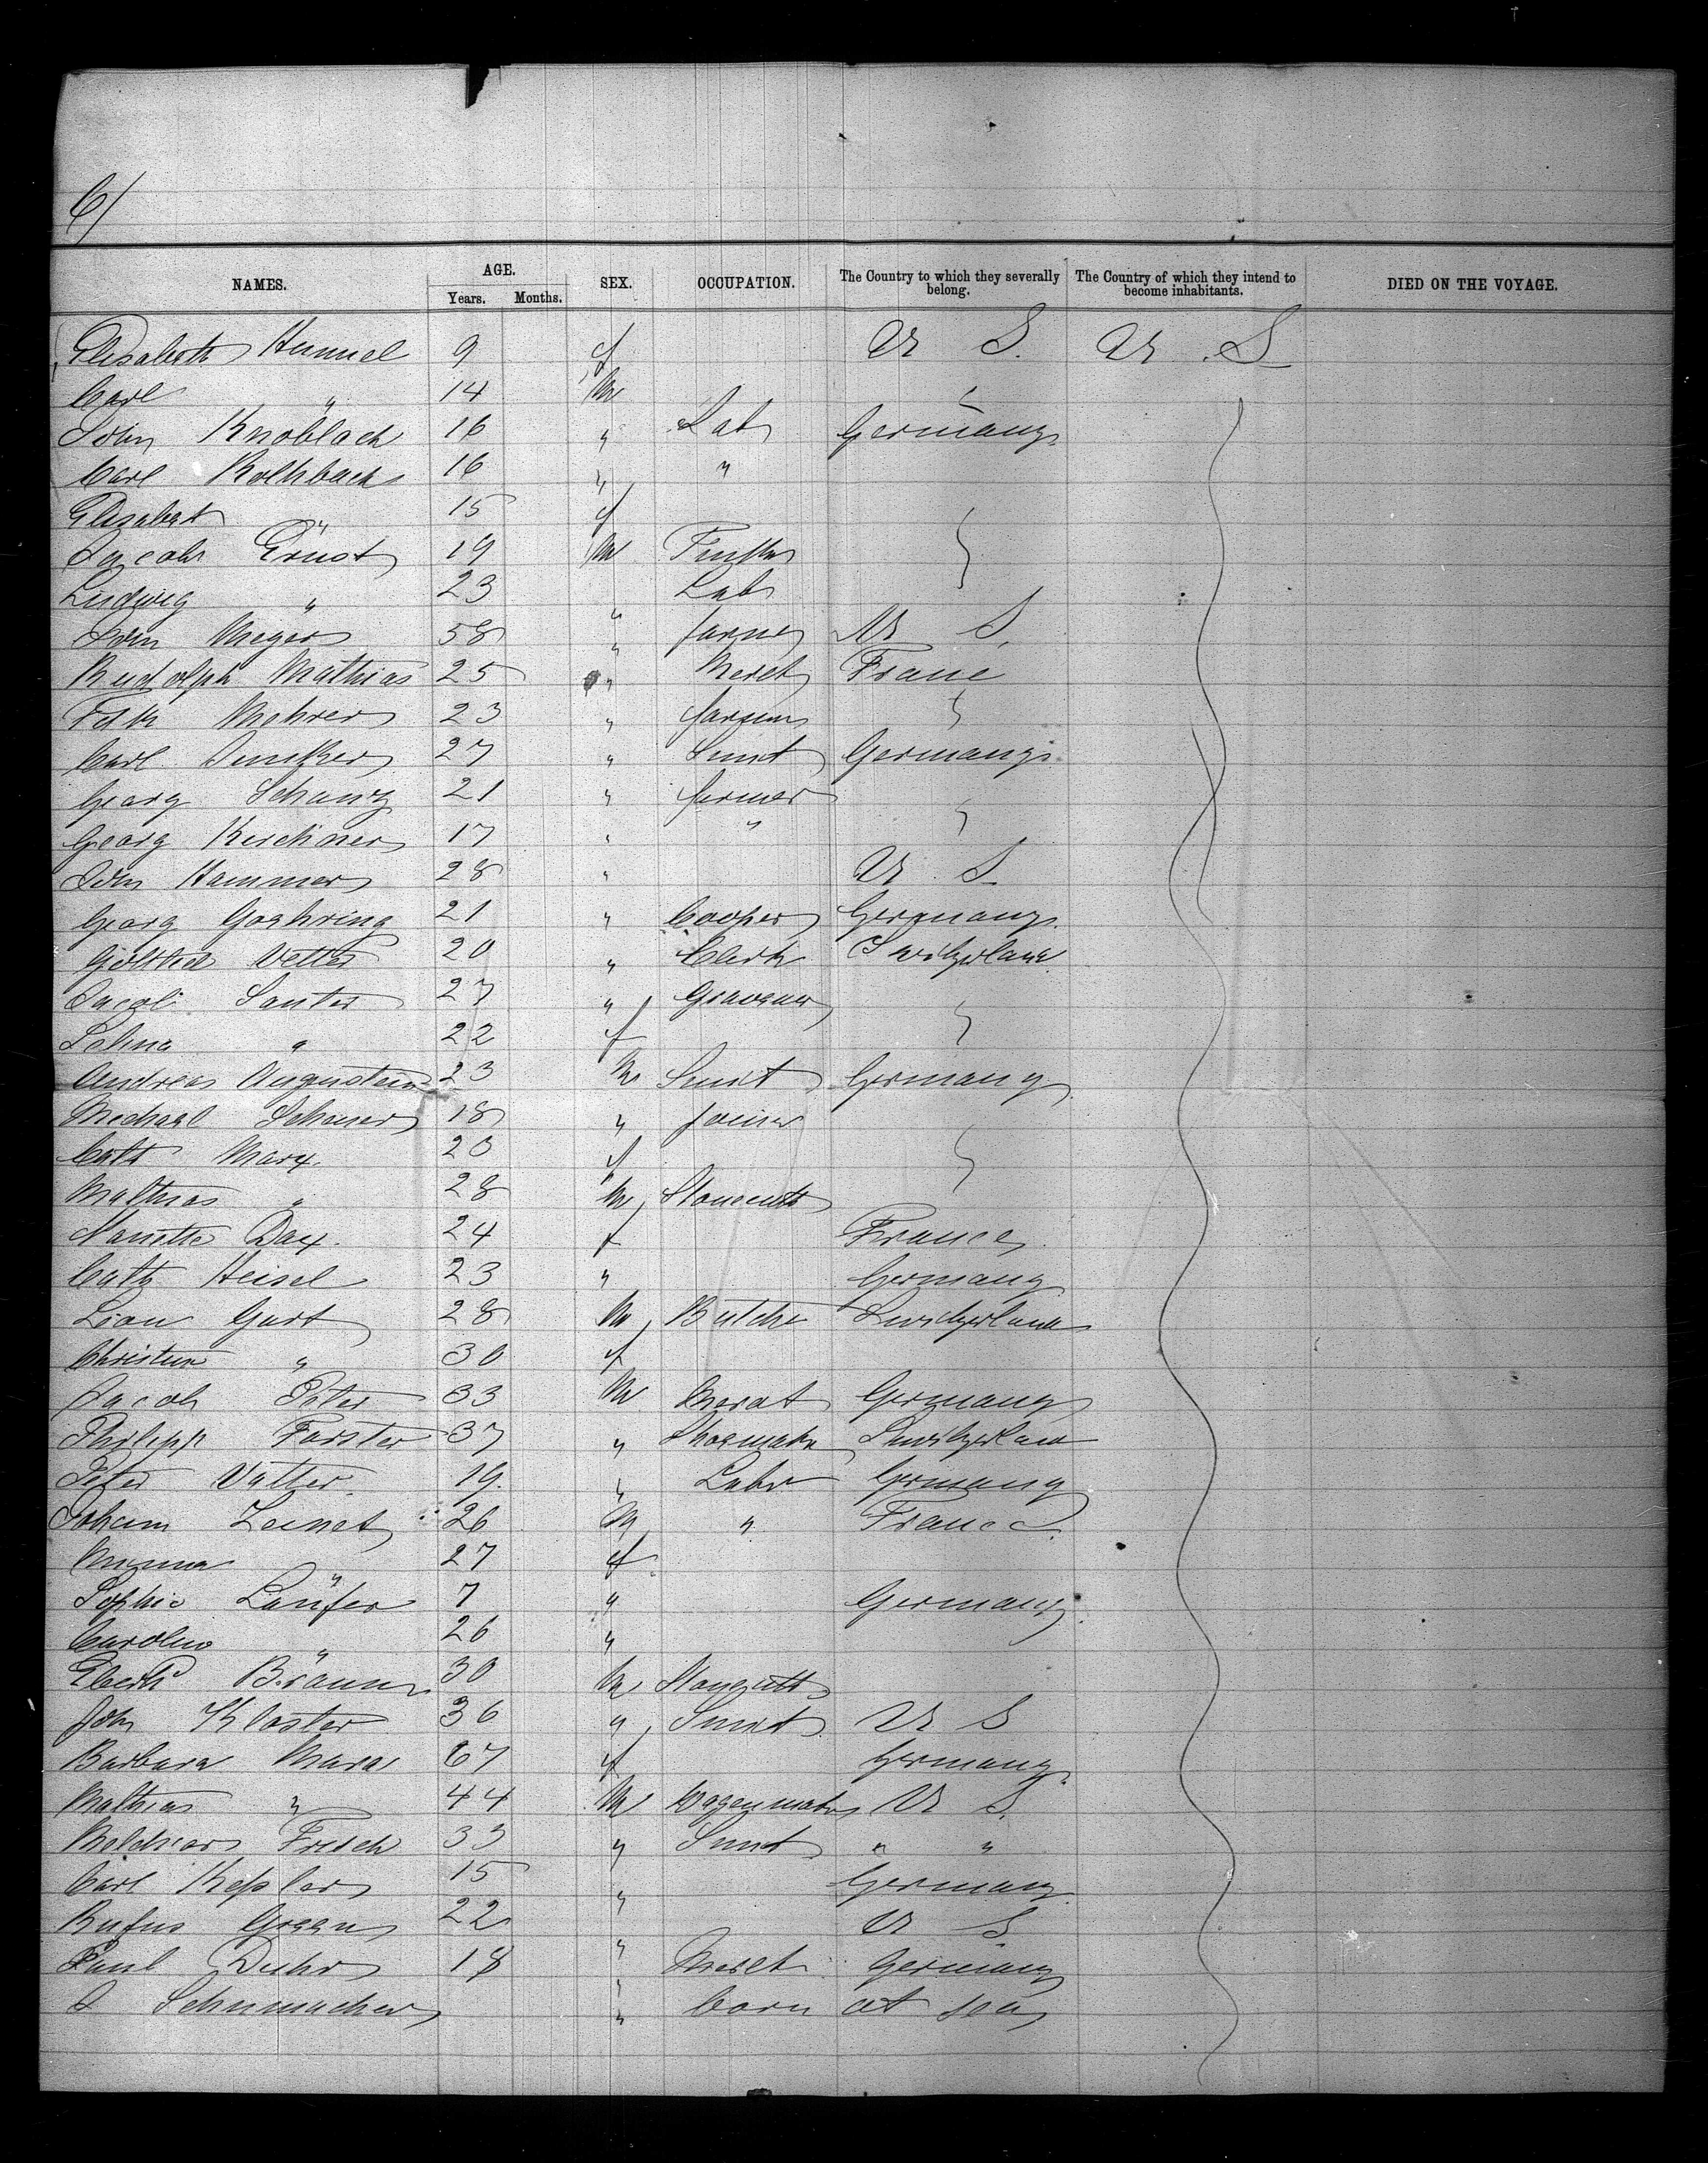 6/
NAMES. AGE. Years. Months. SEX. OCCUPATION. The Country to which they severally belong. The Country of which they intend to become inhabitants. DIED ON THE VOYAGE.
Elisabeth Hummel 9 f U S. U. S
Carl " 14 M
John Knoblach 16 " Lab Germany
Carl Rothbach 16 " "
Elisabet " 15 f
Jacob Ernst 19 M
Ludwig " 23 " Lab
John Meyer 58 " farmer U S.
Rudolph Mathias 25 " France
Fdk Mehrer 23 " farmer
Carl Junker 27 " Smit Germany
Georg Schanz 21 " farmer
Georg Kirchner 17 " "
John Hammer 28 " U. S.
Georg Goehring 21 " Cooper Germany
Vetter 20 " Clerk Switzerland
Jacob Santer 27 "
" 22 f
Andreas Augustein 23 M Smit Germany
Michael Scheuer 18 " joiner
Cath Marx 20 f
Mathias " 28 M Stonecutt
Nanette Dax 24 f France
Cath Heisel 23 " Germany
28 M Butcher Switzerland
Christine " 30 f
Jacob Peter 33 M Germany
Philipp Forster 37 " Shoemaker Switzerland
Peter Vatter 19. " Labr Germany
Johann 26 M " France
" 27 f
Sophie Läufer 7 " Germany
Caroline " 26 "
Braun 30 M Stonecutt
John Kloster 36 " Smit U S
Barbara 67 f Germany
Mathias " 44 M Wagenmaker U S.
Melchior Frisch 33 " Smit " "
Carl Kepler 15 " Germany
Rufus Green 22 " U S
Paul 18 " Germany
J Schumacher " born at sea